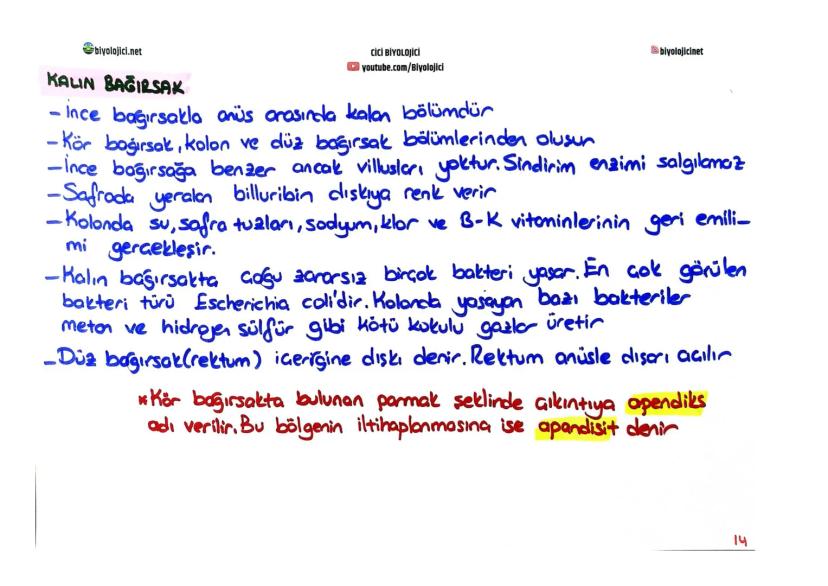 biyolojici.net
CİCİ BİYOLOJİCİ
youtube.com/Biyolojici
biyolojicinet
KALIN BAĞIRSAK
- İnce bağırsakla anüs arasında kalan bölümdür
- Kör bağırsak, kolon ve düz bağırsak bölümlerinden oluşur
- İnce bağırsağa benzer ancak villusları yoktur. Sindirim enzimi salgılamaz
- Safrada yeralan billuribin dışkıya renk verir
- Kolonda su, safra tuzları, sodyum, klor ve B-K vitaminlerinin geri emili-
mi gerçekleşir.
- Kalın bağırsakta çoğu zararsız birçok bakteri yaşar. En çok görülen
bakteri türü Escherichia coli'dir. Kolonda yaşayan bazı bakteriler
metan ve hidrojen sülfür gibi kötü kokulu gazlar üretir
- Düz bağırsak(rektum) içeriğine dışkı denir. Rektum anüsle dışarı açılır
* Kör bağırsakta bulunan parmak şeklinde çıkıntıya apendiks
adı verilir. Bu bölgenin iltihaplanmasına ise apandisit denir
14